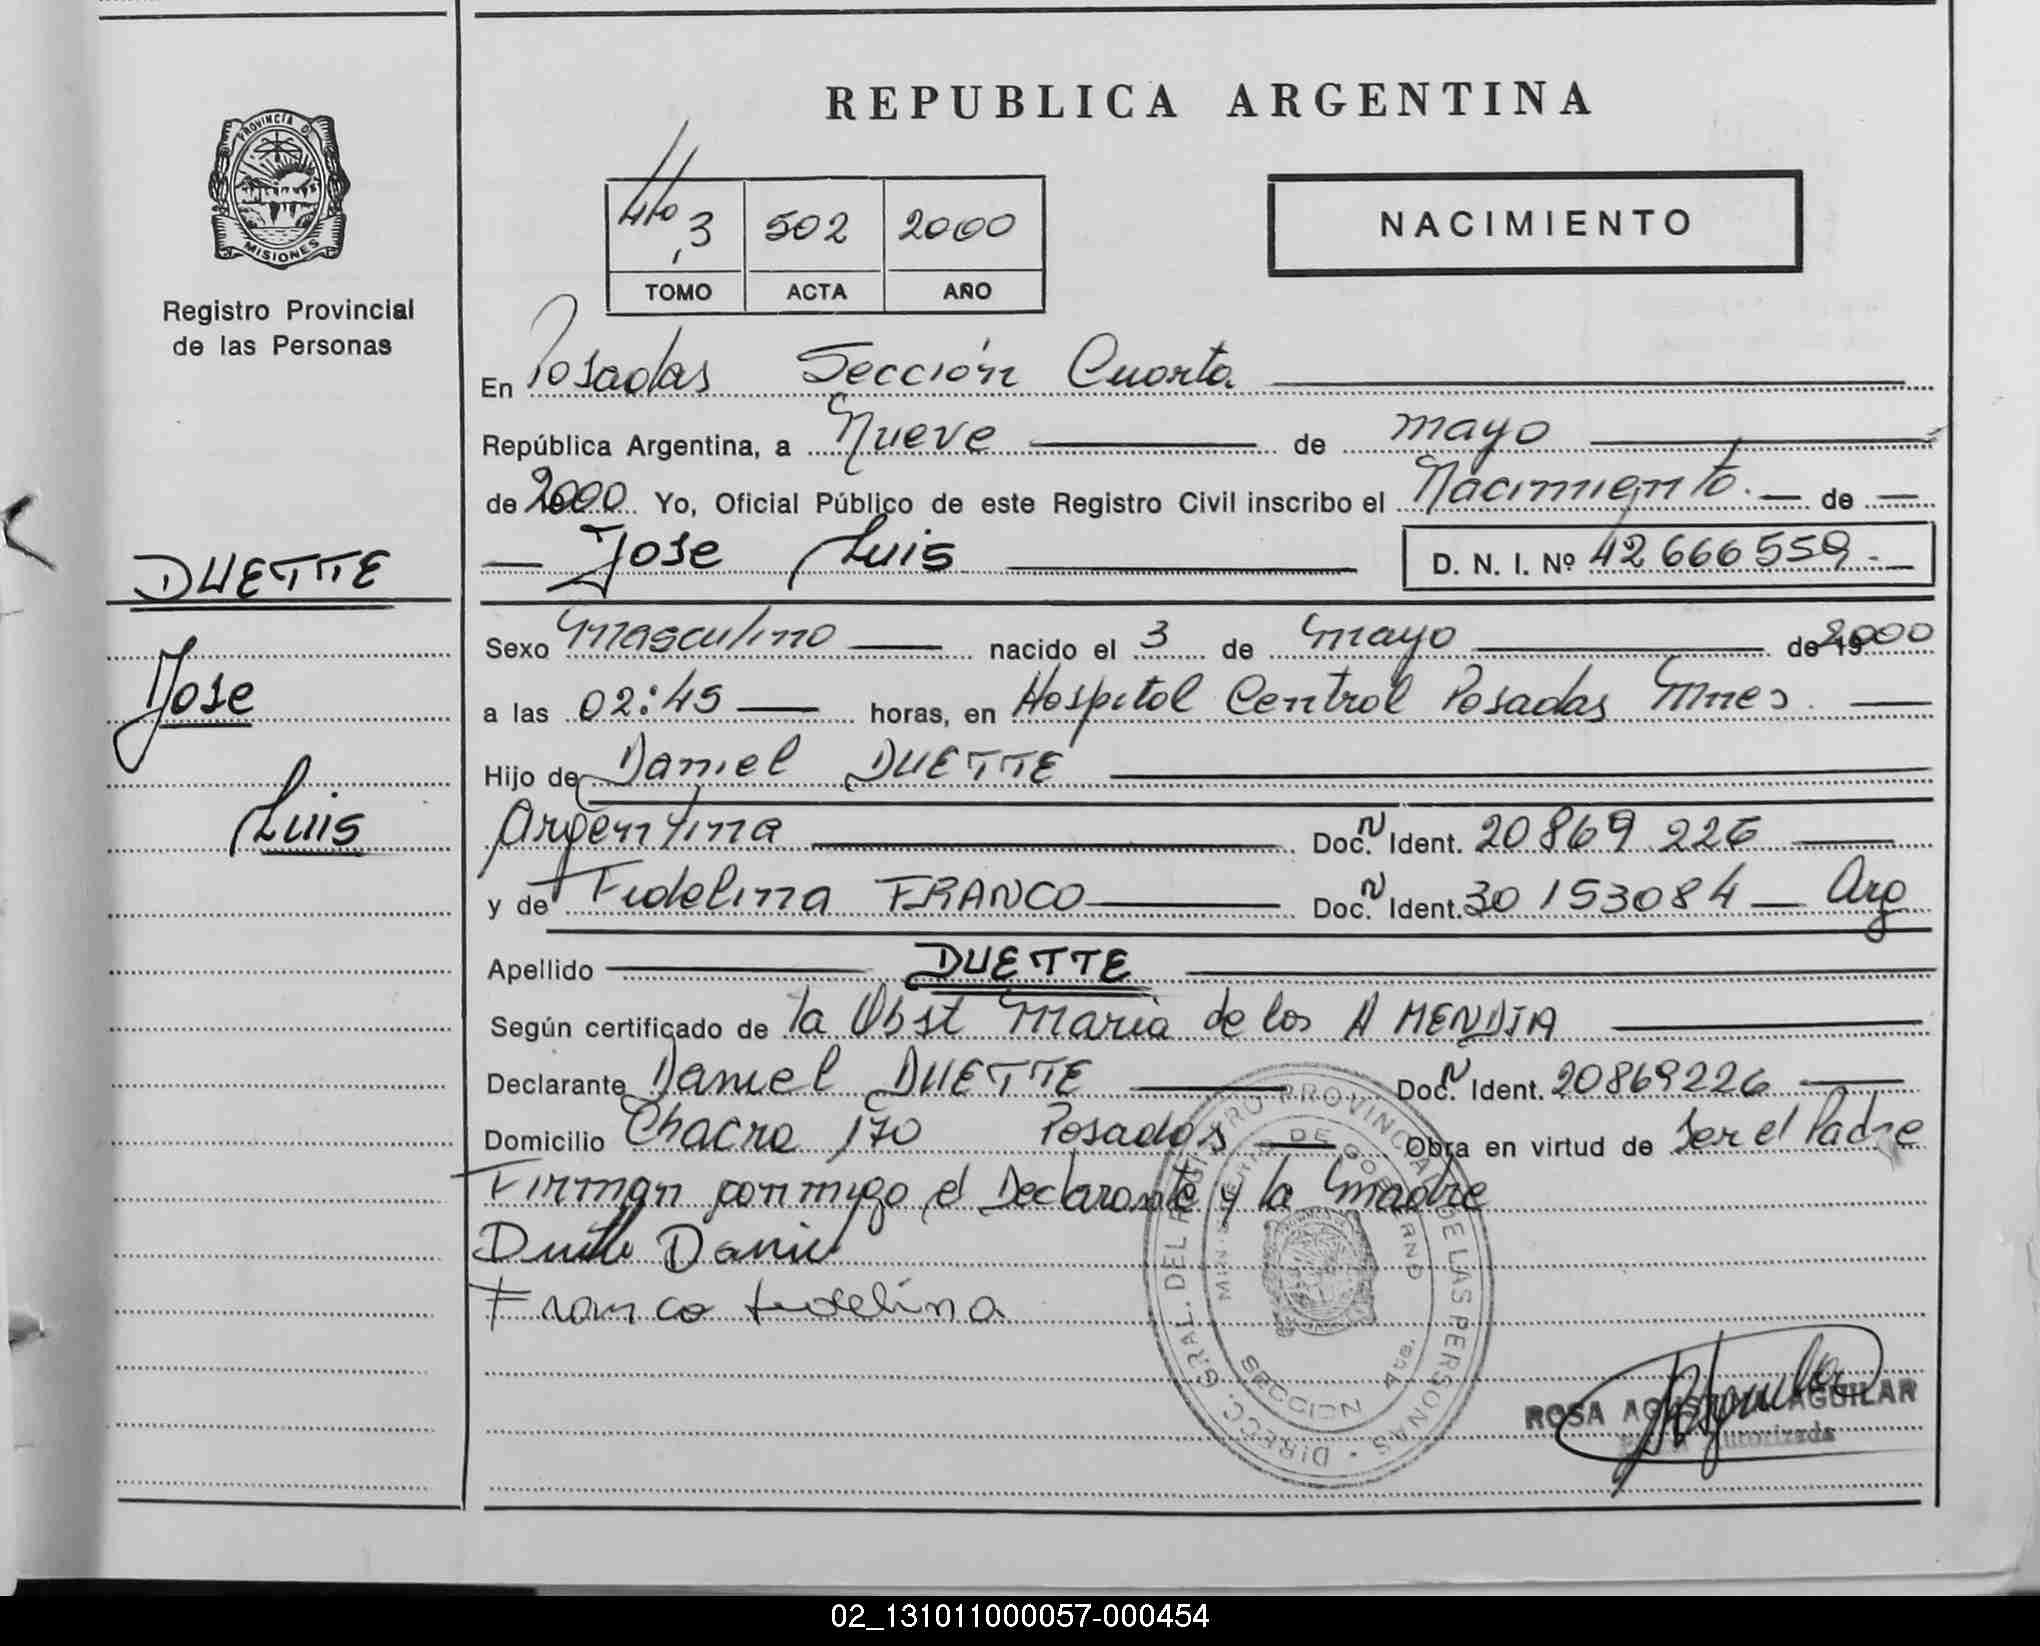 REPUBLICA ARGENTINA
PROVINCIA D
MISIONES
Registro Provincial
de las Personas
4to 3 502 2000
TOMO ACTA AÑO
NACIMIENTO
En Posadas Sección Cuarta
República Argentina, a Nueve de mayo
de 2000 Yo, Oficial Público de este Registro Civil inscribo el Nacimiento. de
Jose Luis D. N. I. Nº 42 666 559.-
DUETTE
Jose
Luis
Sexo Masculino nacido el 3 de Mayo de 19 2000
a las 02:45 horas, en Hospital Central Posadas Mnes.
Hijo de Daniel DUETTE
Argentina Doc. N Ident. 20 869 226
y de Fidelina FRANCO Doc. N Ident. 30 153084 Arg
Apellido DUETTE
Según certificado de la Obst Maria de los A MENDIA
Declarante Daniel DUETTE Doc. N Ident. 20869226
Domicilio Chacra 170 Posadas Obra en virtud de Ser el Padre
Firman conmigo el Declarante y la Madre
Duette Daniel
Franco fidelina
DIRECC. GRAL. DEL REGISTRO PROVINCIAL DE LAS PERSONAS
MINISTERIO DE GOBIERNO
SECCION 4ta.
ROSA AGUSTINA AGUILAR
Autorizada
02_131011000057-000454